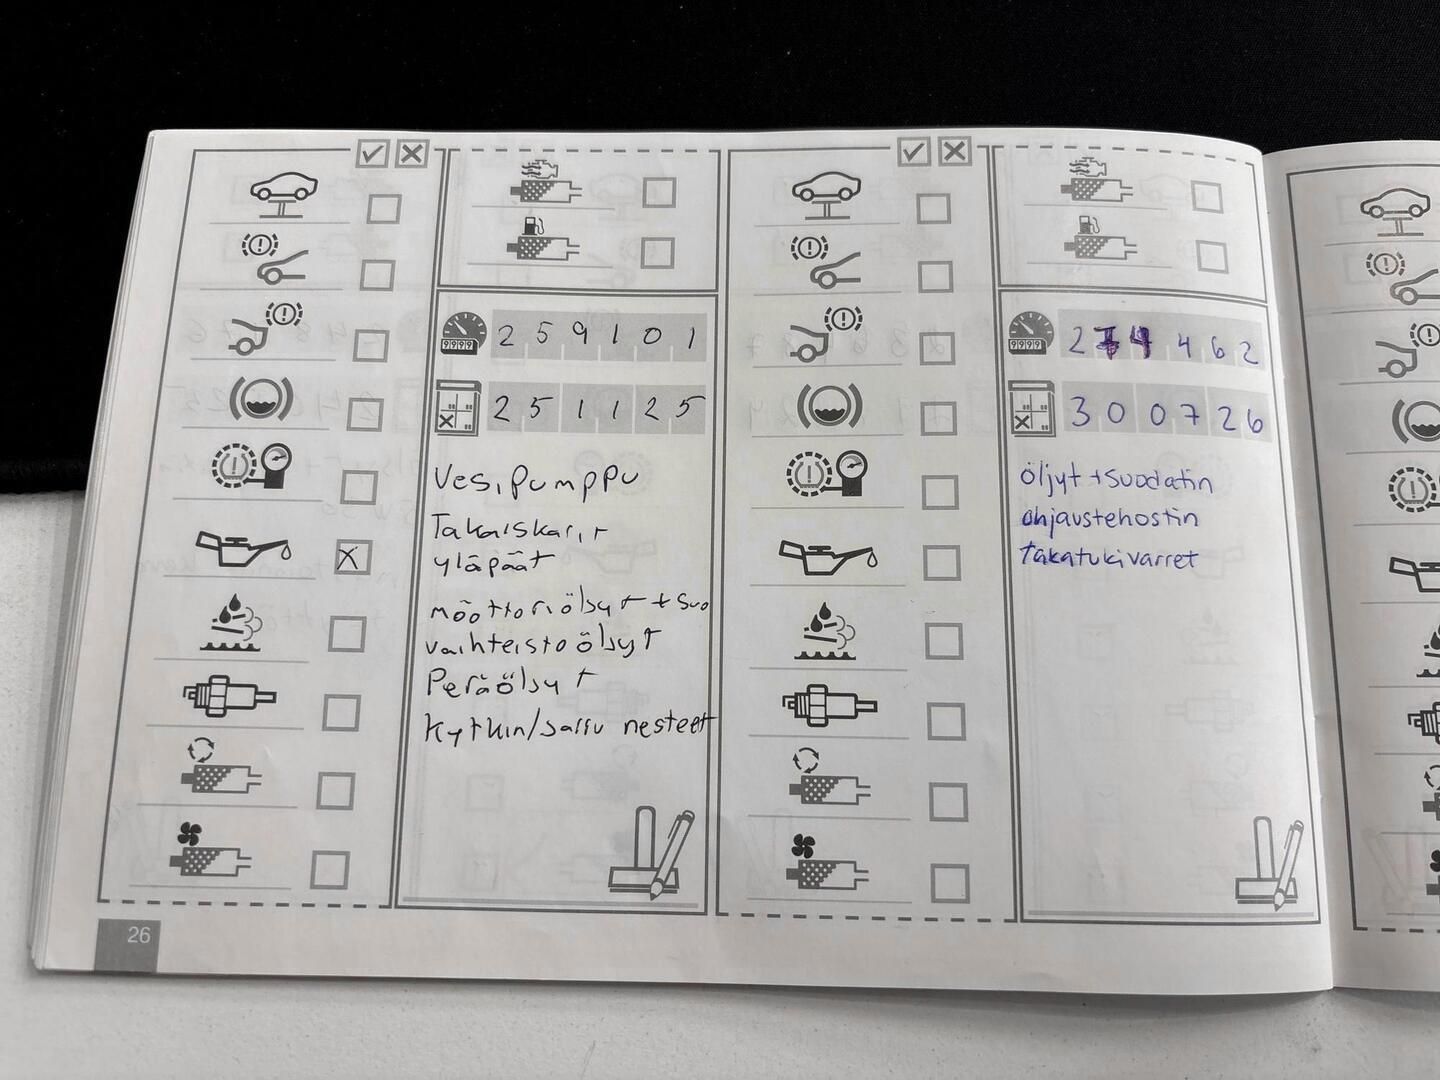 259101
251125
Vesipumppu
Takaiskarit
yläpäät
möottoriölsyt + suo
vaihteistoölsyt
Peräölsyt
Kytkin/Jarru nesteet
274462
300726
öljyt + suodatin
ohjaustehostin
takatukivarret
26